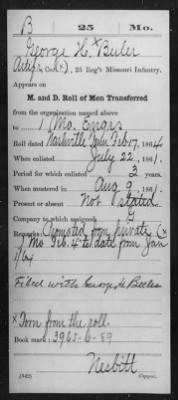 B 25 Mo.
George H. × Buler
Artif., Co. (×), 25 Reg't Missouri Infantry.
Appears on
M. and D. Roll of Men Transferred
from the organization named above
to 1 Mo. Engrs
Roll dated Nashville Tenn Feb 17, 1864
When enlisted July 22, 1861.
Period for which enlisted 3 years.
When mustered in Aug 9, 1861.
Present or absent Not stated
Company to which assigned G
Remarks: Promoted from private (×
1 Mo Feb. 4 to date from Jan
1/64
Filed with George H
× Torn from the roll
Book mark: 3965-6-89
Nesbitt
(342) Copyist.